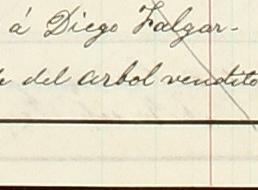 á Diego Falgar-
del arbol vendito